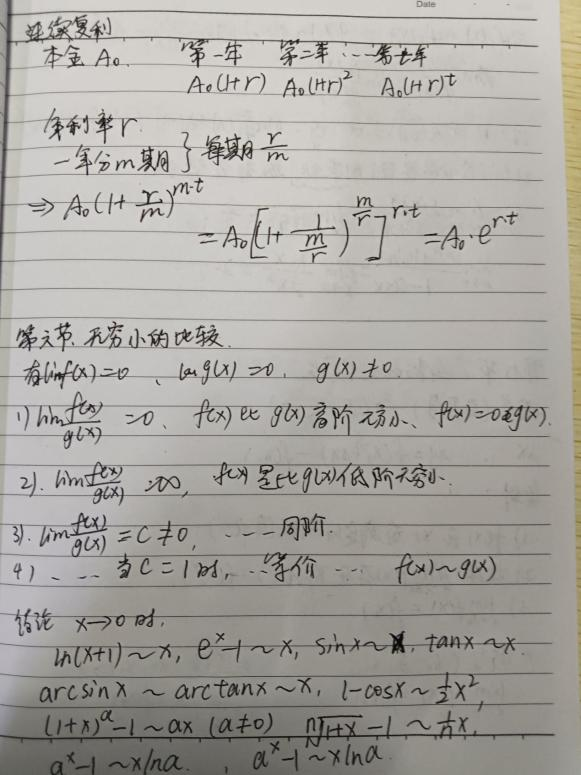 Date
连续复利
本金 A₀. 第一年 第二年 … 第t年
A₀(1+r) A₀(1+r)² A₀(1+r)^t
年利率r.
一年分m期 } 每期 r/m
⇒ A₀(1+r/m)^{m·t}
= A₀[(1+1/(m/r))^{m/r}]^{r·t} = A₀·e^{r·t}
第六节、无穷小的比较.
有limf(x)=0、limg(x)=0、g(x)≠0.
1) lim f(x)/g(x) =0、f(x)比g(x)高阶无穷小、f(x)=o(g(x)).
2). lim f(x)/g(x) =∞, f(x)是比g(x)低阶无穷小.
3). lim f(x)/g(x) = C ≠ 0, ---- 同阶.
4) 、 --- 当C=1时, …等价 … f(x)~g(x)
结论 x→0时.
ln(x+1)~x, e^x-1~x, sinx~x, tanx~x.
arcsinx ~ arctanx~x, 1-cosx~½x²,
(1+x)^a-1~ax (a≠0) ⁿ√(1+x) -1 ~ 1/n x,
a^x-1~xlna. , a^x-1~xlna.